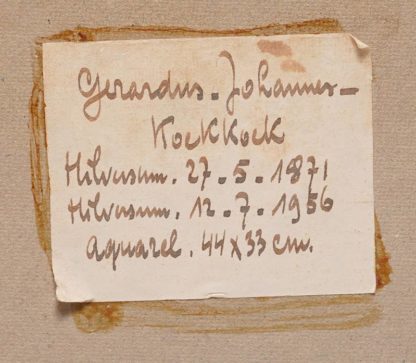 Gerardus. Johannes-
Koekkoek
Hilversum. 27.5.1871
Hilversum. 12.7.1956
aquarel. 44x33 cm.